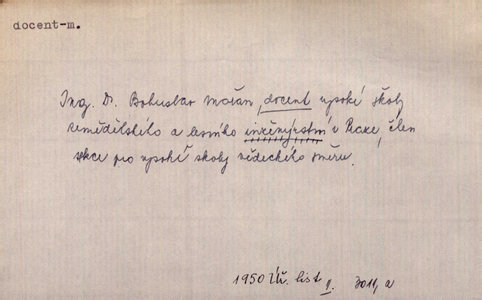 docent-m.
Ing. Dr. Bohuslav Mařan, docent vysoké školy
zemědělského a lesního inženýrství v Praze, člen
sekce pro vysoké školy vědeckého směru.
1950 Úř. list II. 3011, a